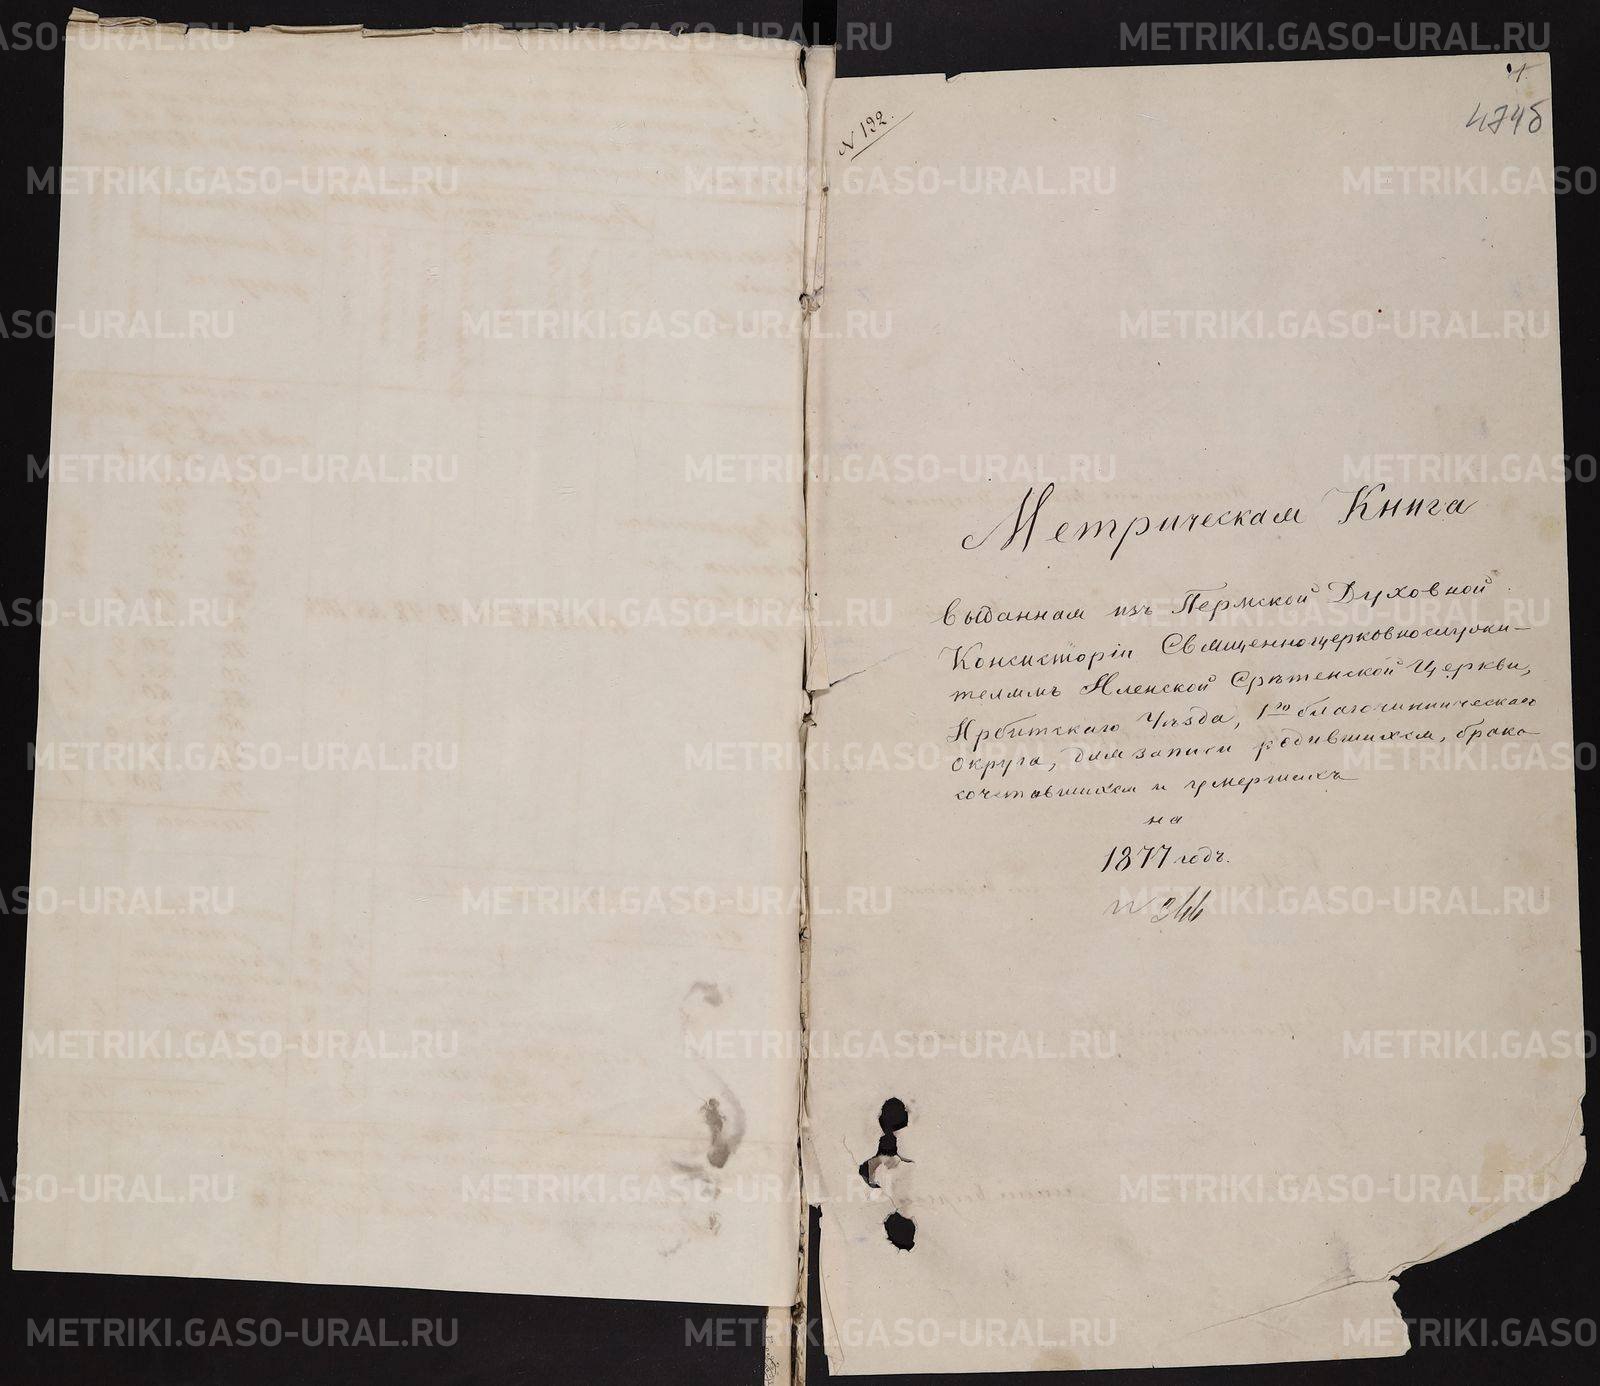 N 192.
1.
474б
Метрическая Книга
Выданная изъ Пермской Духовной
Консисторіи Священноцерковнослужи-
телямъ Иленской Срѣтенской Церкви,
Ирбитскаго Уѣзда, 1го благочинническаго
округа, для записи родившихся, брако-
сочетавшихся и умершихъ
на
1877 годъ.
METRIKI.GASO-URAL.RU